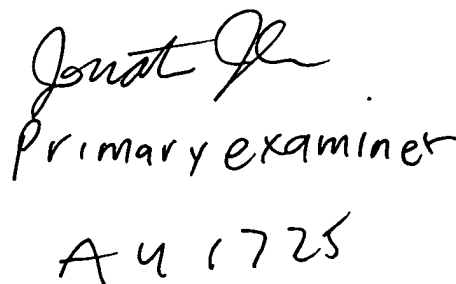 Primary examiner
AU 1725